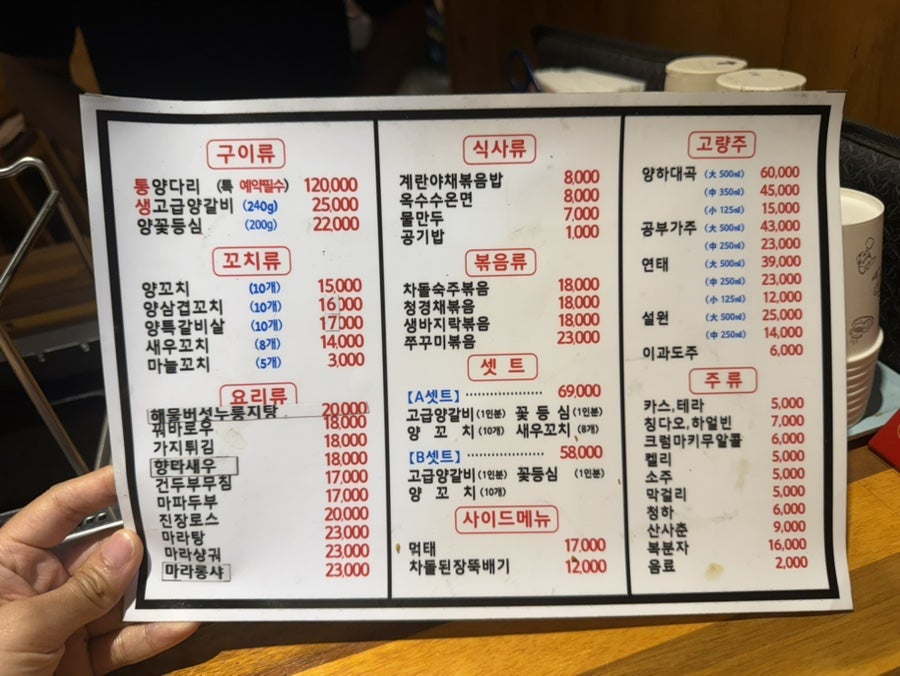 구이류
통양다리 (특 예약필수) 120,000
생고급양갈비 (240g) 25,000
양꽃등심 (200g) 22,000
꼬치류
양꼬치 (10개) 15,000
양삼겹꼬치 (10개) 16,000
양특갈비살 (10개) 17,000
새우꼬치 (8개) 14,000
마늘꼬치 (5개) 3,000
요리류
해물버섯누룽지탕 20,000
꿔바로우 18,000
가지튀김 18,000
향라새우 18,000
건두부무침 17,000
마파두부 17,000
진장로스 20,000
마라탕 23,000
마라샹궈 23,000
마라롱샤 23,000
식사류
계란야채볶음밥 8,000
옥수수온면 8,000
물만두 7,000
공기밥 1,000
볶음류
차돌숙주볶음 18,000
청경채볶음 18,000
생바지락볶음 18,000
쭈꾸미볶음 23,000
셋 트
【A셋트】 69,000
고급양갈비(1인분) 꽃 등 심(1인분)
양 꼬 치(10개) 새우꼬치(8개)
【B셋트】 58,000
고급양갈비(1인분) 꽃등심 (1인분)
양 꼬 치(10개)
사이드메뉴
먹태 17,000
차돌된장뚝배기 12,000
고량주
양하대곡 (大 500㎖) 60,000
(中 350㎖) 45,000
(小 125㎖) 15,000
공부가주 (大 500㎖) 43,000
(中 250㎖) 23,000
연태 (大 500㎖) 39,000
(中 250㎖) 23,000
(小 125㎖) 12,000
설원 (大 500㎖) 25,000
(中 250㎖) 14,000
이과도주 6,000
주 류
카스,테라 5,000
칭다오,하얼빈 7,000
크럼마키무알콜 6,000
켈리 5,000
소주 5,000
막걸리 5,000
청하 6,000
산사춘 9,000
복분자 16,000
음료 2,000